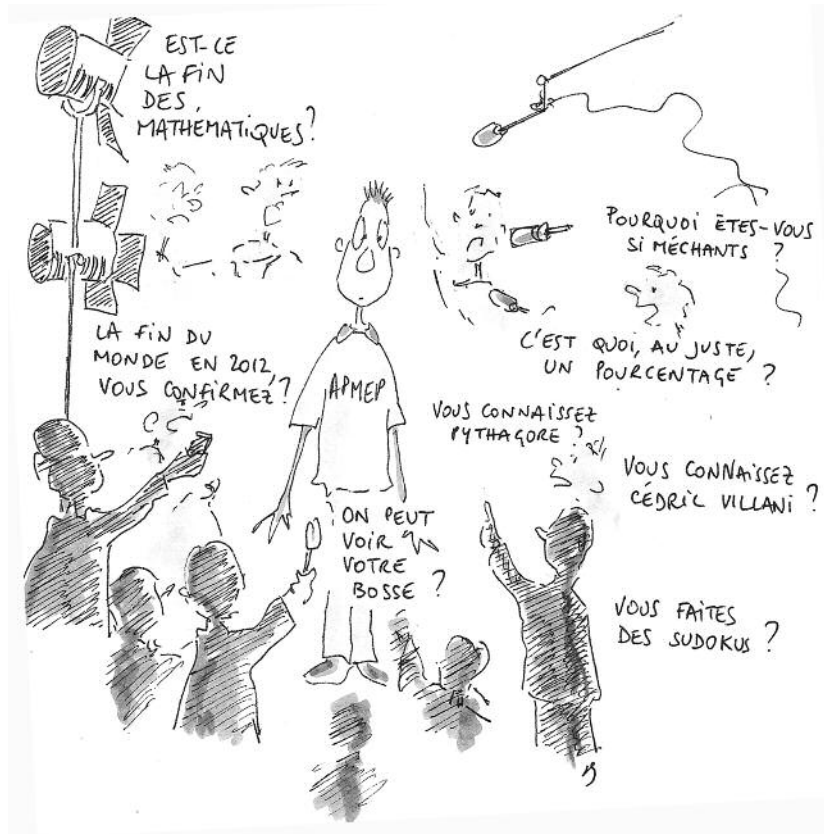 EST-CE
LA FIN
DES
MATHEMATIQUES?
POURQUOI ÊTES-VOUS
SI MÉCHANTS ?
LA FIN DU
MONDE EN 2012,
VOUS CONFIRMEZ ?
C'EST QUOI, AU JUSTE,
UN POURCENTAGE ?
APMEP
VOUS CONNAISSEZ
PYTHAGORE ?
VOUS CONNAISSEZ
CÉDRIC VILLANI ?
ON PEUT
VOIR
VOTRE
BOSSE ?
VOUS FAITES
DES SUDOKUS ?